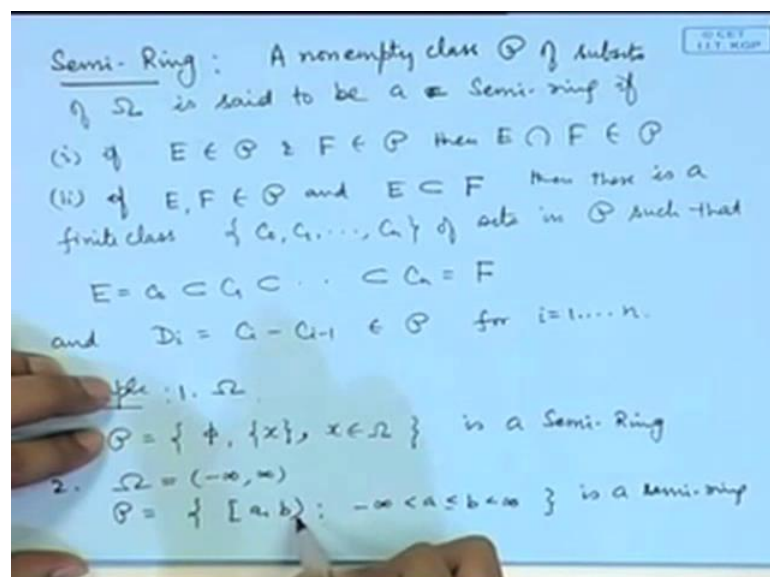 © CET
I.I.T. KGP
Semi-Ring : A nonempty class 𝒫 of subsets
of Ω is said to be a Semi-ring if
(i) if E ∈ 𝒫 & F ∈ 𝒫 then E ∩ F ∈ 𝒫
(ii) if E, F ∈ 𝒫 and E ⊂ F then there is a
finite class { C₀, C₁, ..., Cₙ } of sets in 𝒫 such that
E = C₀ ⊂ C₁ ⊂ · · ⊂ Cₙ = F
and Dᵢ = Cᵢ - Cᵢ₋₁ ∈ 𝒫 for i = 1 .... n.
ple : 1. Ω
𝒫 = { φ, {x}, x ∈ Ω } is a Semi-Ring
2. Ω = (-∞, ∞)
𝒫 = { [a, b) : -∞ < a ≤ b < ∞ } is a semi-ring